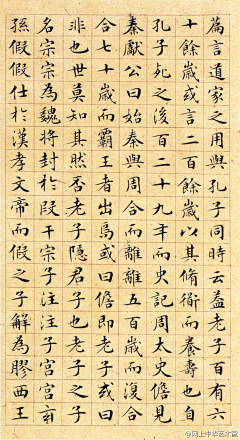 篇言道家之用與孔子同時云蓋老子百有六
十餘歲或言二百餘歲以其脩術而養壽也自
孔子死之後百二十九年而史記周太史儋見
秦獻公曰始秦與周合而離離五百歲而復合
合七十歲而霸王者出焉或曰儋即老子或曰
非也世莫知其然否老子隱君子也老子之子
名宗宗為魏將封於段干宗子注注子宮宮玄
孫假假仕於漢孝文帝而假之子解為膠西王
@网上中华艺术宫